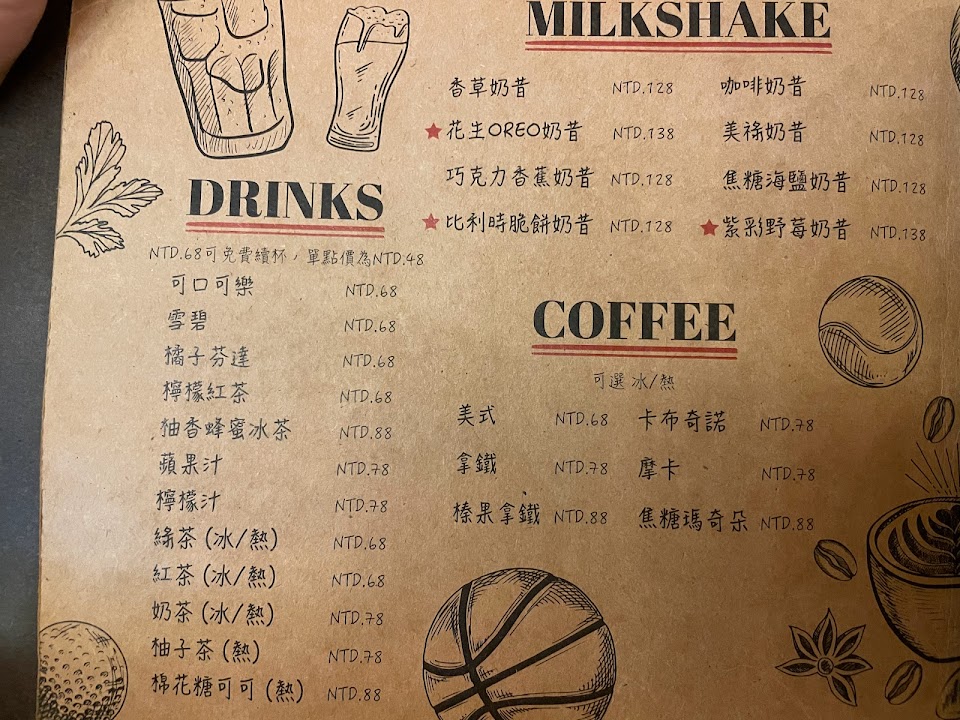 MILKSHAKE
香草奶昔 NTD.128 咖啡奶昔 NTD.128
★花生OREO奶昔 NTD.138 美祿奶昔 NTD.128
巧克力香蕉奶昔 NTD.128 焦糖海鹽奶昔 NTD.128
★比利時脆餅奶昔 NTD.128 ★紫彩野莓奶昔 NTD.138
DRINKS
NTD.68可免費續杯，單點價為NTD.48
可口可樂 NTD.68
雪碧 NTD.68
橘子芬達 NTD.68
檸檬紅茶 NTD.68
柚香蜂蜜冰茶 NTD.88
蘋果汁 NTD.78
檸檬汁 NTD.78
綠茶 (冰/熱) NTD.68
紅茶 (冰/熱) NTD.68
奶茶 (冰/熱) NTD.78
柚子茶 (熱) NTD.78
棉花糖可可 (熱) NTD.88
COFFEE
可選 冰/熱
美式 NTD.68 卡布奇諾 NTD.78
拿鐵 NTD.78 摩卡 NTD.78
榛果拿鐵 NTD.88 焦糖瑪奇朵 NTD.88